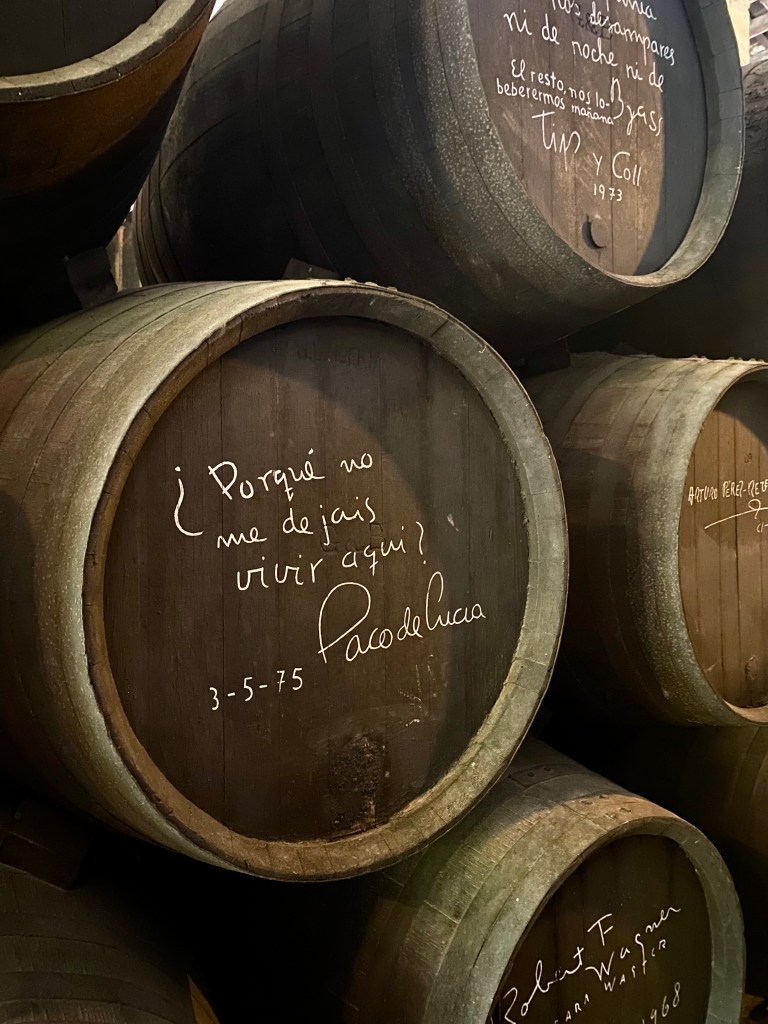 desampares
ni de noche ni de
El resto, nos lo-
beberermos mañana
Byass
Tip y Coll
1973
¿Porqué no
me dejais
vivir aqui?
Paco de Lucia
3-5-75
ARTURO PÉREZ-
Robert F
Wagner
1968